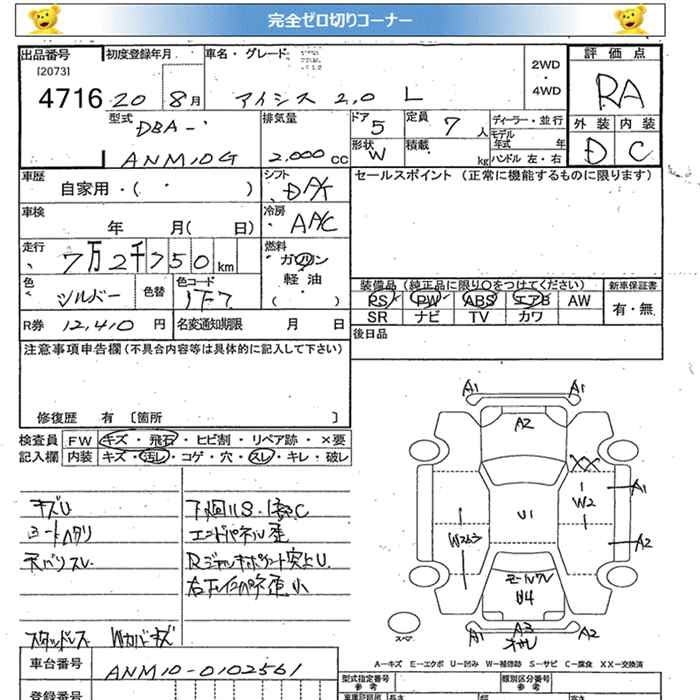 完全ゼロ切りコーナー
出品番号 初度登録年月 車名・グレード 2WD・4WD 評価点
[2073]
4716 20 8月 アイシス 2.0 L RA
型式 DBA- 排気量 ドア 5 定員 7人 ディーラー・並行 外装 内装
モデル年式 年
ANM10G 2.000cc 形状 W 積載 kg ハンドル 左・右 D C
車歴 シフト セールスポイント (正常に機能するものに限ります)
自家用・( ) DA/t
車検 冷房
年 月( 日) A/C
走行 燃料
7万2千750km ガソリン
色 色替 色コード 軽油 装備品(純正品に限り○をつけてください) 新車保証書
シルバー 1F7 ( ) PS PW ABS エアB AW 有・無
R券 12,410円 名変通知期限 月 日 SR ナビ TV カワ
注意事項申告欄(不具合内容等は具体的に記入して下さい) 後日品
修復歴 有 [箇所 ]
検査員 FW キズ・飛石・ヒビ割・リペア跡・×要
記入欄 内装 キズ・汚レ・コゲ・穴・スレ・キレ・破レ
キズU
シートヘタリ エンドパネル歪
天バリスレ
スタッドレス Wカバーキズ
A1 A1
A2
XX
W2
A1
U1
W2 A2
U4
A1 A3 A2
スペア
A-キズ E-エクボ U-凹み W-補修跡 S-サビ C-腐食 XX-交換済
車台番号 ANM10-0102561 型式指定番号 参考 類別区分番号 参考
登録番号